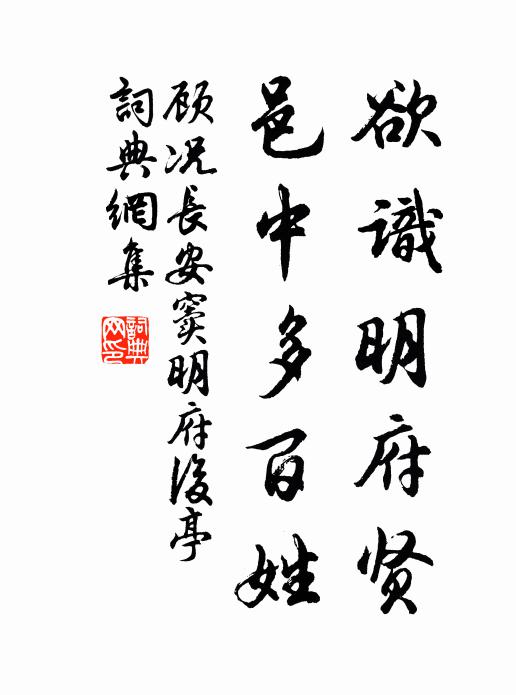 欲識明府贤
邑中多百姓
顾况長安窦明府後亭
詞典網集
詞典网印